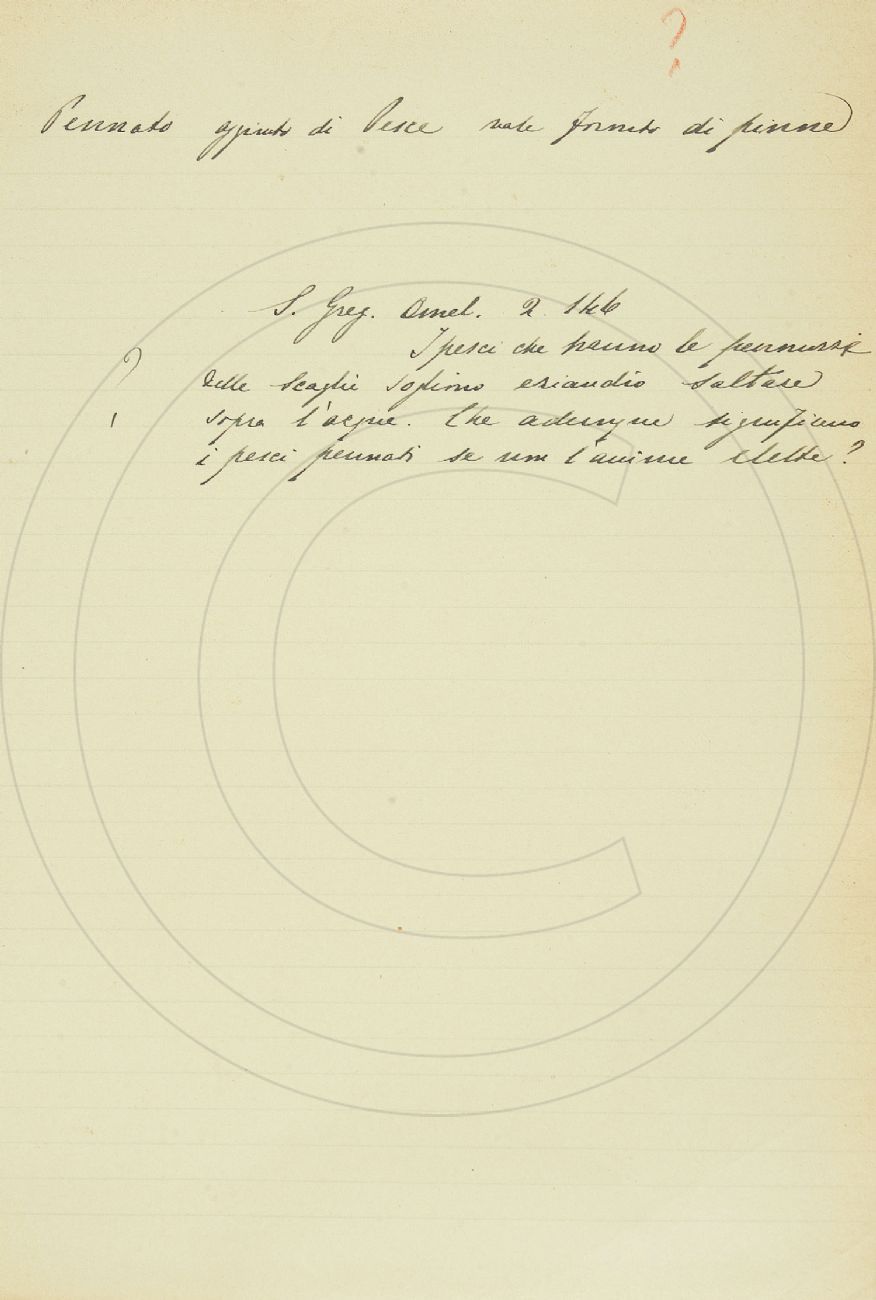 ?
Pennato aggiunto di Pesce vale fornito di pinne
S. Greg. Omel. 2 146
I pesci che hanno le pennuzze
?
delle scaglie sogliono eziandio saltare
sopra l'acque. Che adunque significano
i pesci pennati se non l'anime elette?